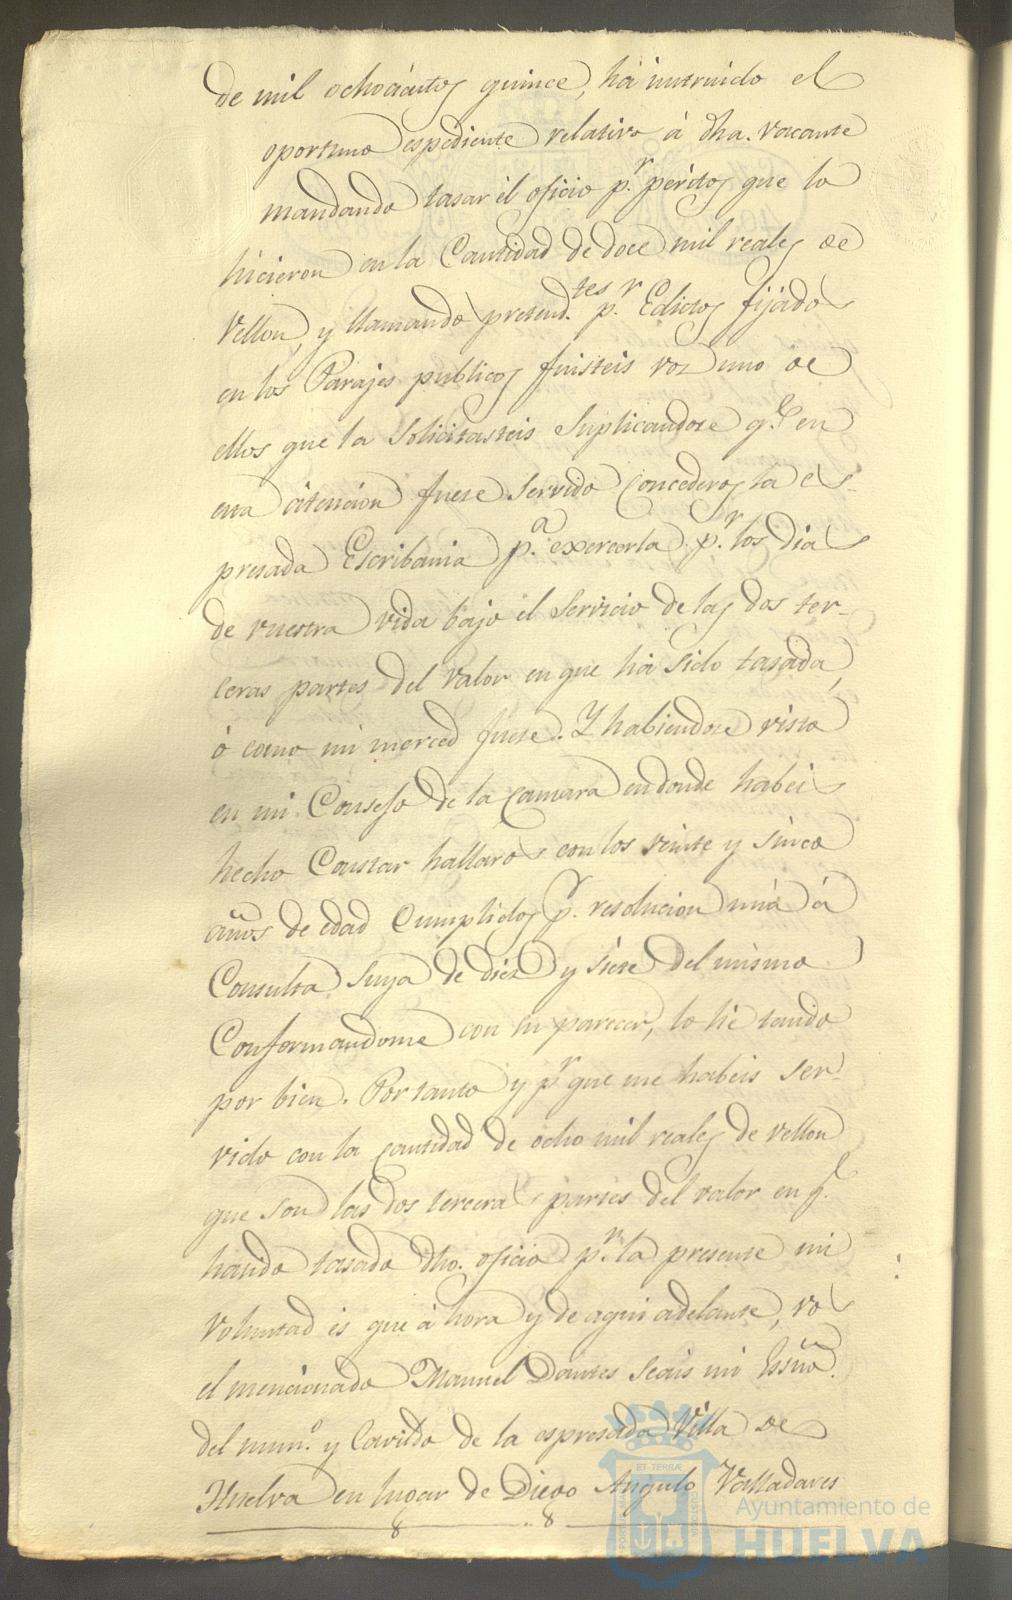 de mil ochocientos quince, há instruido el
oportuno espediente relativo á dha. vacante
mandando tasar el oficio p.r peritos que lo
hicieron en la Cantidad de doce mil reales de
Vellon, y llamando pretend.tes p.r Edictos fijados
en los Parajes publicos fuisteis vos uno de
ellos que la Solicitasteis Suplicandose q.e en
esta atencion fuese Servido Concederos la es-
presada Escribania p.a exercerla p.r los dias
de vuestra vida bajo el Servicio de las dos ter-
ceras partes del valor en que há sido tasada,
ó como mi merced fuese. Y habiendose visto
en mi Consejo de la Camara en donde habeis
hecho Constar hallaros con los veinte y sinco
años de edad Cumplidos p.r resolucion mia á
Consulta Suya de diez y siete del mismo
Conformandome con su parecer, lo hé tenido
por bien. Por tanto y p.r que me habeis ser-
vido con la cantidad de ocho mil reales de vellon
que son las dos terceras partes del valor en q.e
han sido tasado dho. oficio p.r la presente mi
Voluntad es que á hora y de aqui adelante, vos
el mencionado Manuel Dantes Seais mi Essno.
del num.o y Cavildo de la espresada Villa de
Huelva en lugar de Diego Angulo Valladares
ET TERRÆ
Ayuntamiento de
HUELVA